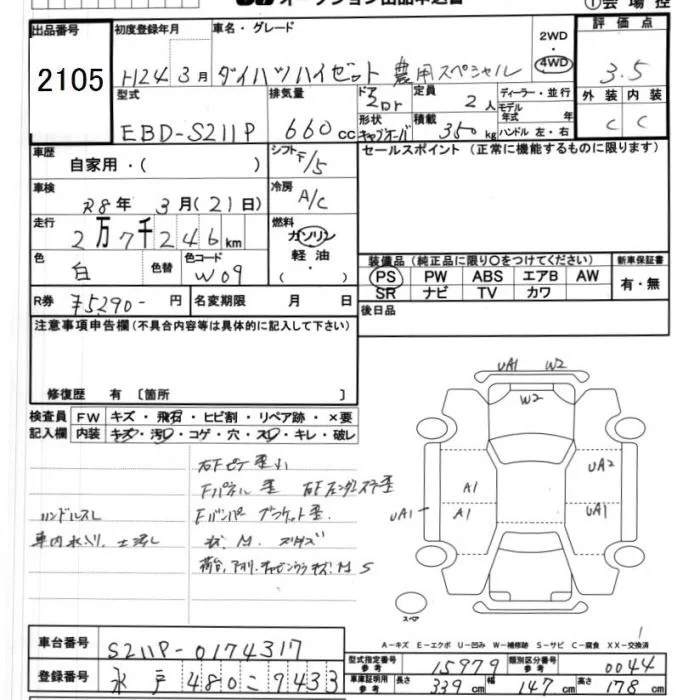 出品番号 初度登録年月 車名・グレード 評価点
2105 H24 3月 ダイハツハイゼット 農用スペシャル 2WD 4WD 3.5
型式 排気量 ドア 定員 ディーラー・並行 外装 内装
EBD-S211P 660cc 2Dr 2人 モデル年式 年 C C
形状 キャブオーバ 積載 350kg ハンドル 左・右
車歴 自家用・( ) シフト F/5 セールスポイント (正常に機能するものに限ります)
車検 R8年 3月(21日) 冷房 A/C
走行 2万7千246km 燃料 ガソリン 軽油・( )
色 白 色替 色コード W09
装備品(純正品に限り〇をつけてください) 新車保証書
PS PW ABS エアB AW 有・無
SR ナビ TV カワ
R券 ¥5,290- 円 名変期限 月 日 後日品
注意事項申告欄(不具合内容等は具体的に記入して下さい)
修復歴 有 [箇所 ]
UA1 W2
W2
検査員 FW キズ・飛石・ヒビ割・リペア跡・×要
記入欄 内装 キズ・汚レ・コゲ・穴・スレ・キレ・破レ
UA2
A1
Fパネル 歪
UA1 A1 UA1
ハンドルスレ Fバンパ ブラケット歪
車内水入り、土汚レ
スペア
A-キズ E-エクボ U-凹み W-補修跡 S-サビ C-腐食 XX-交換済
車台番号 S211P-0174317
型式指定番号 参考 15979 類別区分番号 参考 0044
登録番号 水戸 480に9433
車庫証明用 参考 長さ 339cm 幅 147cm 高さ 178cm